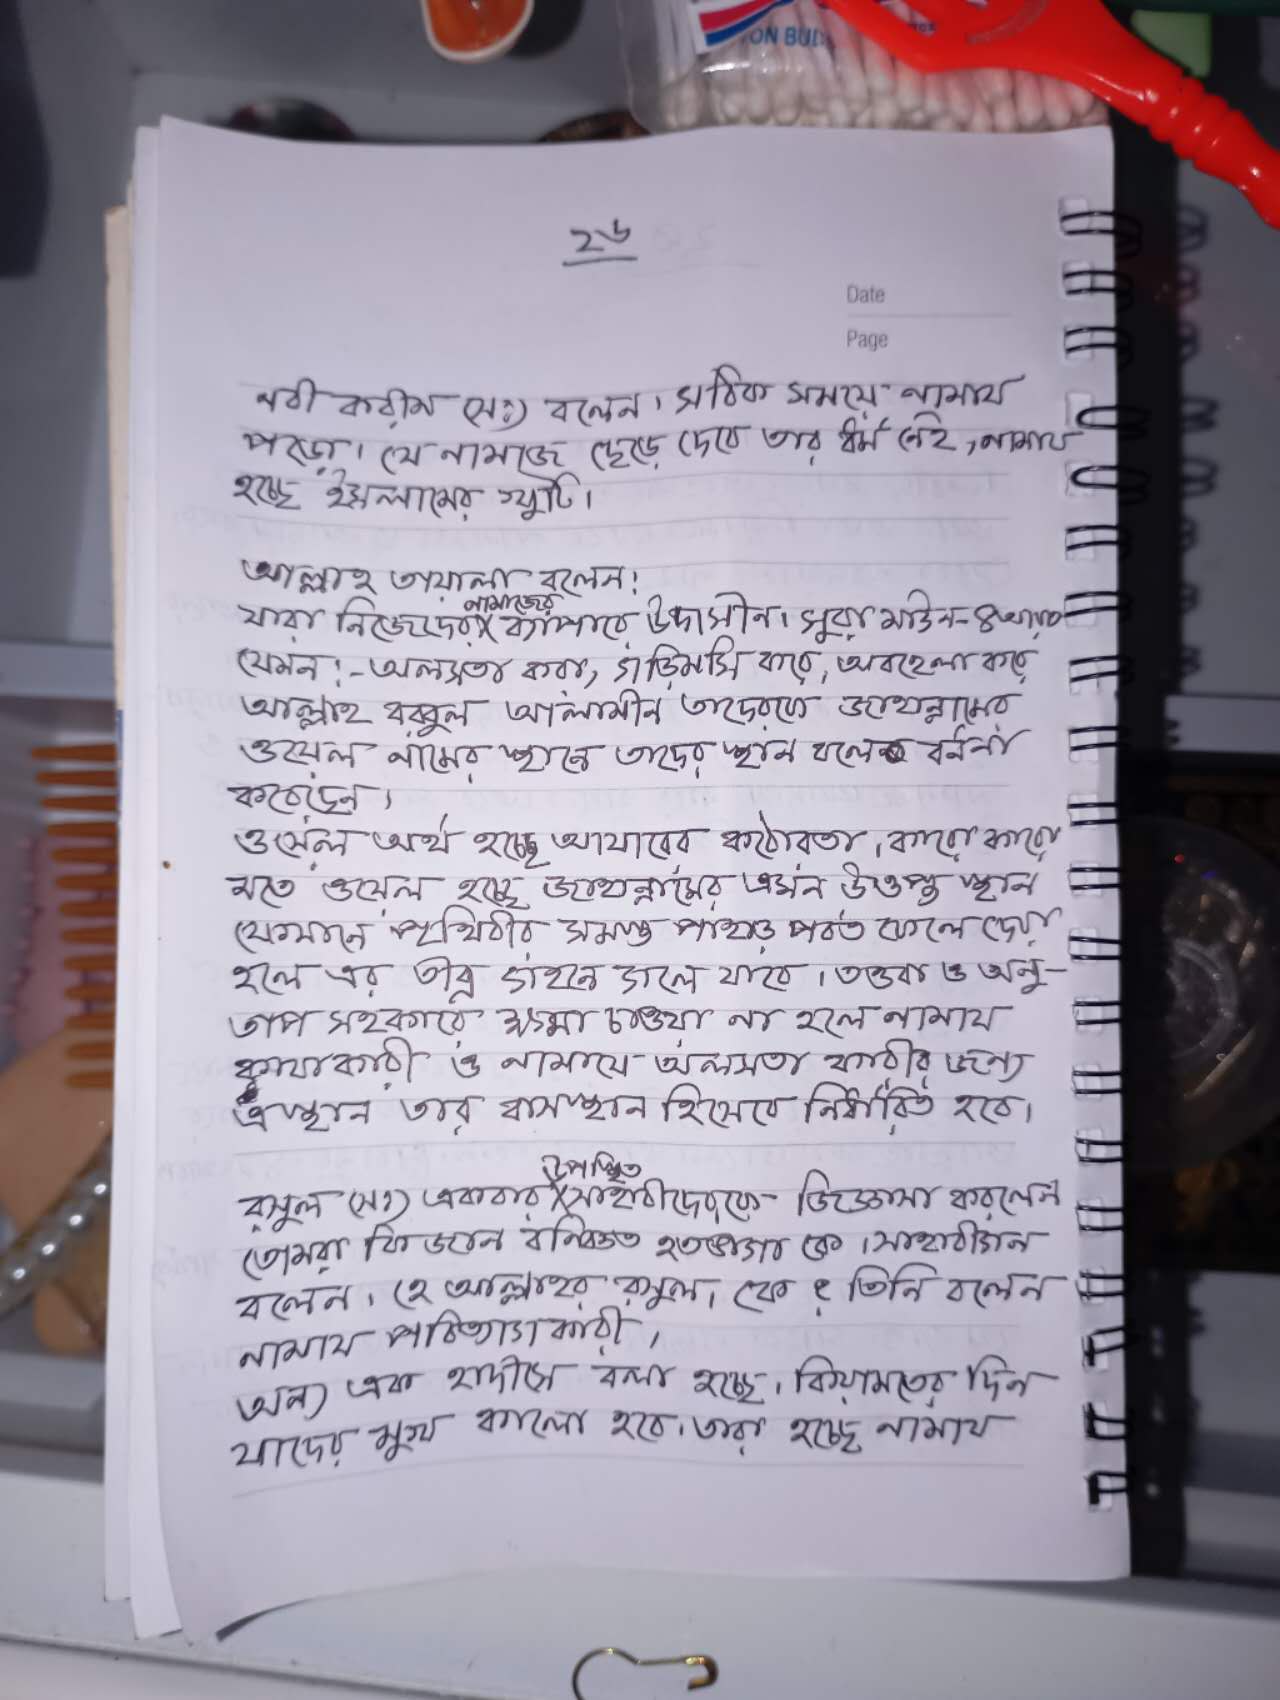 ON BUD
২৬
Date
Page
নবী করীম (সঃ) বলেন। সঠিক সময়ে নামায
পড়ো। যে নামাজে ছেড়ে দেবে তার ধর্ম নেই, নামায
হচ্ছে ইসলামের খুটি।
আল্লাহ তায়ালা বলেন:
নামাজের
যারা নিজেদের X ব্যাপারে উদাসীন। সুরা মাউন-৪আয়াত
যেমন:- অলসতা করা, গড়িমসি করে, অবহেলা করে
আল্লাহ রব্বুল আলামীন তাদেরকে জাহান্নামের
ওয়েল নামের স্থানে তাদের স্থান বলে বর্ননা
করেছেন।
ওয়েল অর্থ হচ্ছে আযাবের কঠোরতা। কারো কারো
মতে ওয়েল হচ্ছে জাহান্নামের এমন উত্তপ্ত স্থান
যেখানে পৃথিবীর সমস্ত পাহাড় পর্বত ফেলে দেয়া
হলে এর তীব্র দাহনে গলে যাবে। তওবা ও অনু-
তাপ সহকারে ক্ষমা চাওয়া না হলে নামায
কাযাকারী ও নামাযে অলসতা কারীর জন্য
এস্থান তার বাসস্থান হিসেবে নির্ধারিত হবে।
উপস্থিত
রসুল (সঃ) একবার X সাহাবীদেরকে জিজ্ঞেসা করলেন
তোমরা কি জান বঞ্চিত হতভাগা কে। সাহাবীগন
বলেন। হে আল্লাহর রসুল। কে? তিনি বলেন
নামায পরিত্যাগকারী।
অন্য এক হাদীসে বলা হচ্ছে। কিয়ামতের দিন
যাদের মুখ কালো হবে। তারা হচ্ছে নামায